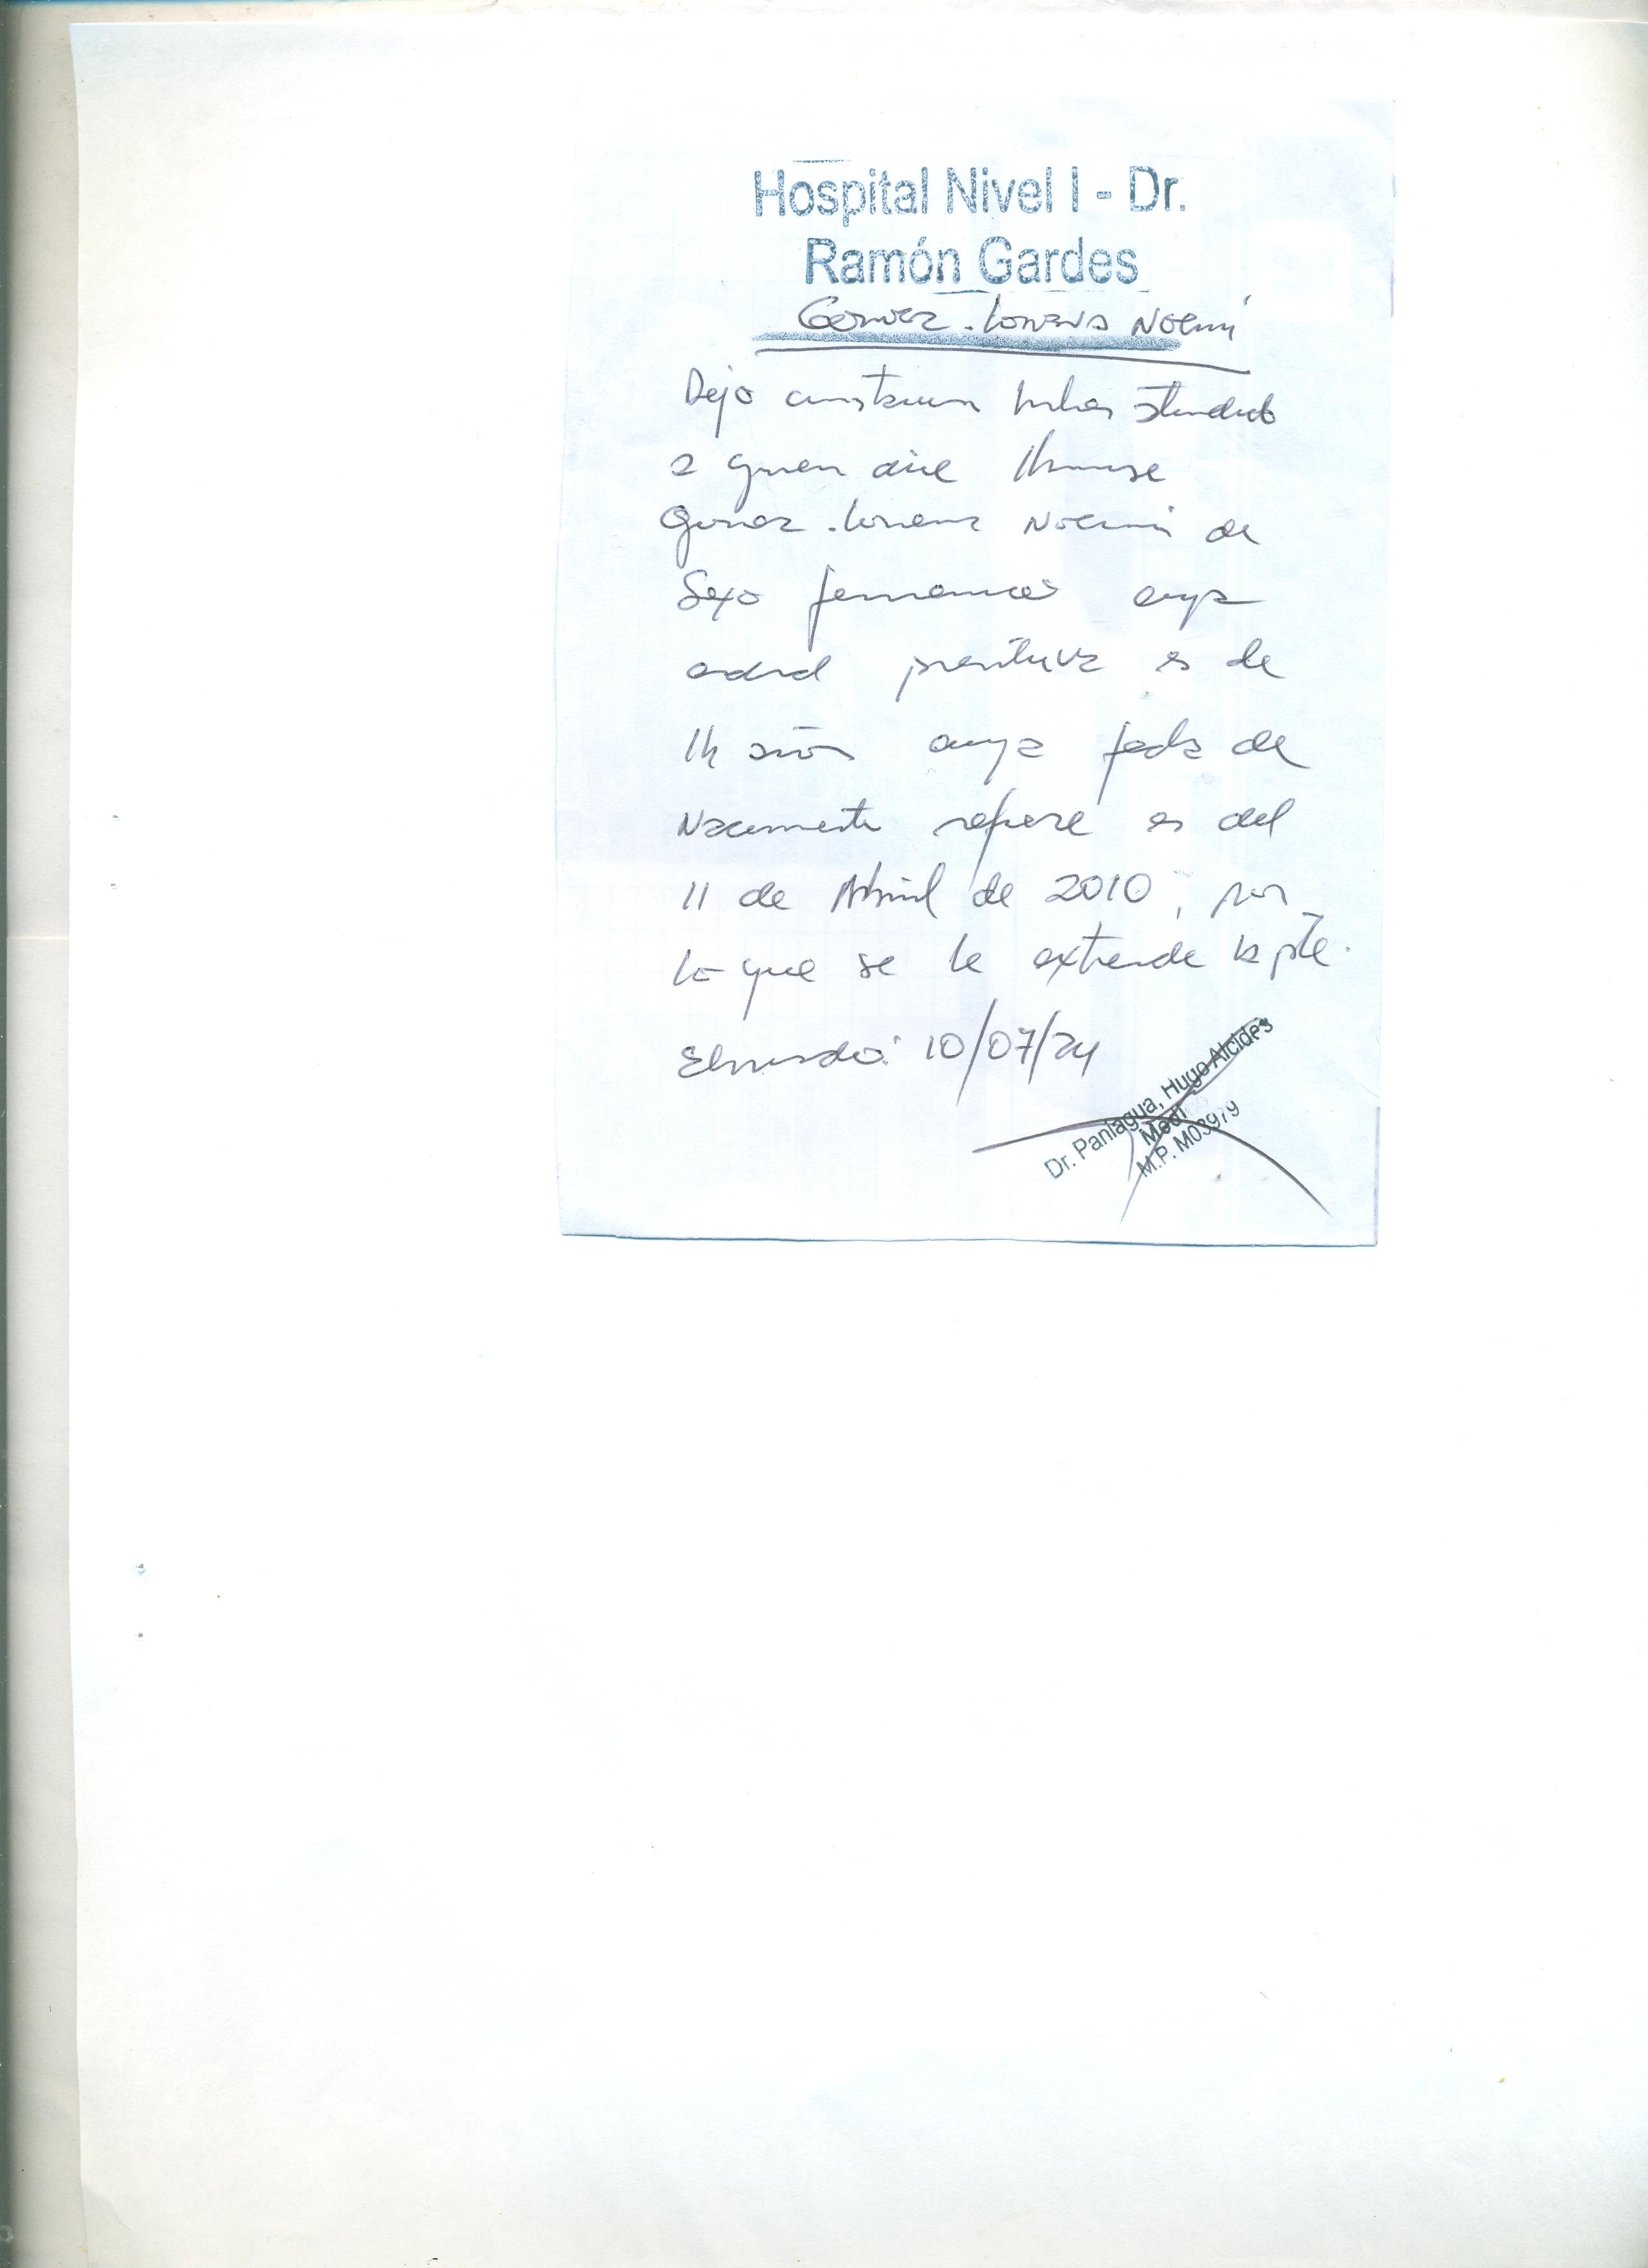 Hospital Nivel I - Dr.
Ramón Gardes
Gomez Lorena Noemi
Dejo constancia haber atendido
a quien dice llamarse
Gomez Lorena Noemi de
Sexo femenino cuya
edad presuntiva es de
14 años cuya fecha de
Nacimiento refiere es del
11 de Abril de 2010, por
lo que se le extiende la pte.
10/07/24
Dr. Paniagua, Hugo Alcides
M.P. M03979